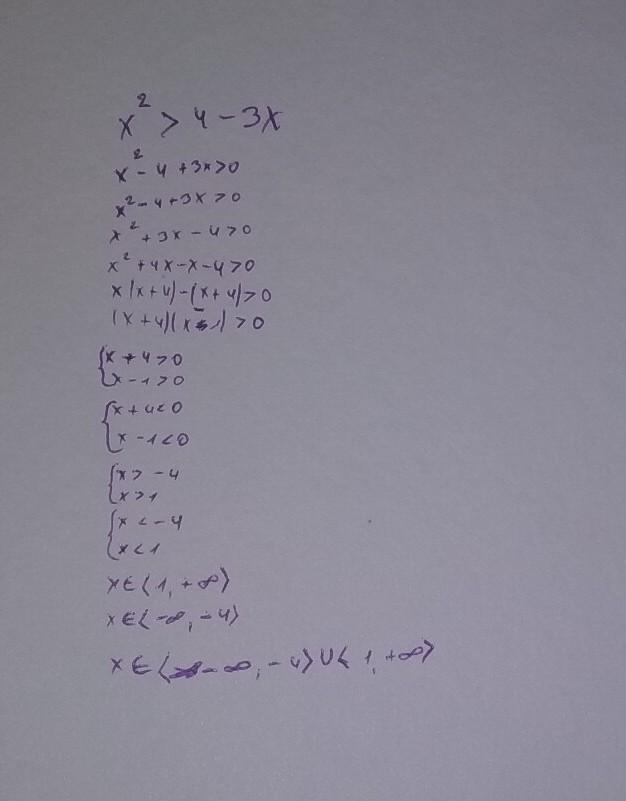 x² > 4 - 3x
x² - 4 + 3x > 0
x² - 4 + 3x > 0
x² + 3x - 4 > 0
x² + 4x - x - 4 > 0
x(x + 4) - (x + 4) > 0
(x + 4)(x - 1) > 0
{x + 4 > 0
x - 1 > 0
{x + 4 < 0
x - 1 < 0
{x > -4
x > 1
{x < -4
x < 1
x ∈ ⟨1, +∞⟩
x ∈ ⟨-∞, -4⟩
x ∈ ⟨-∞, -4⟩ ∪ ⟨1, +∞⟩